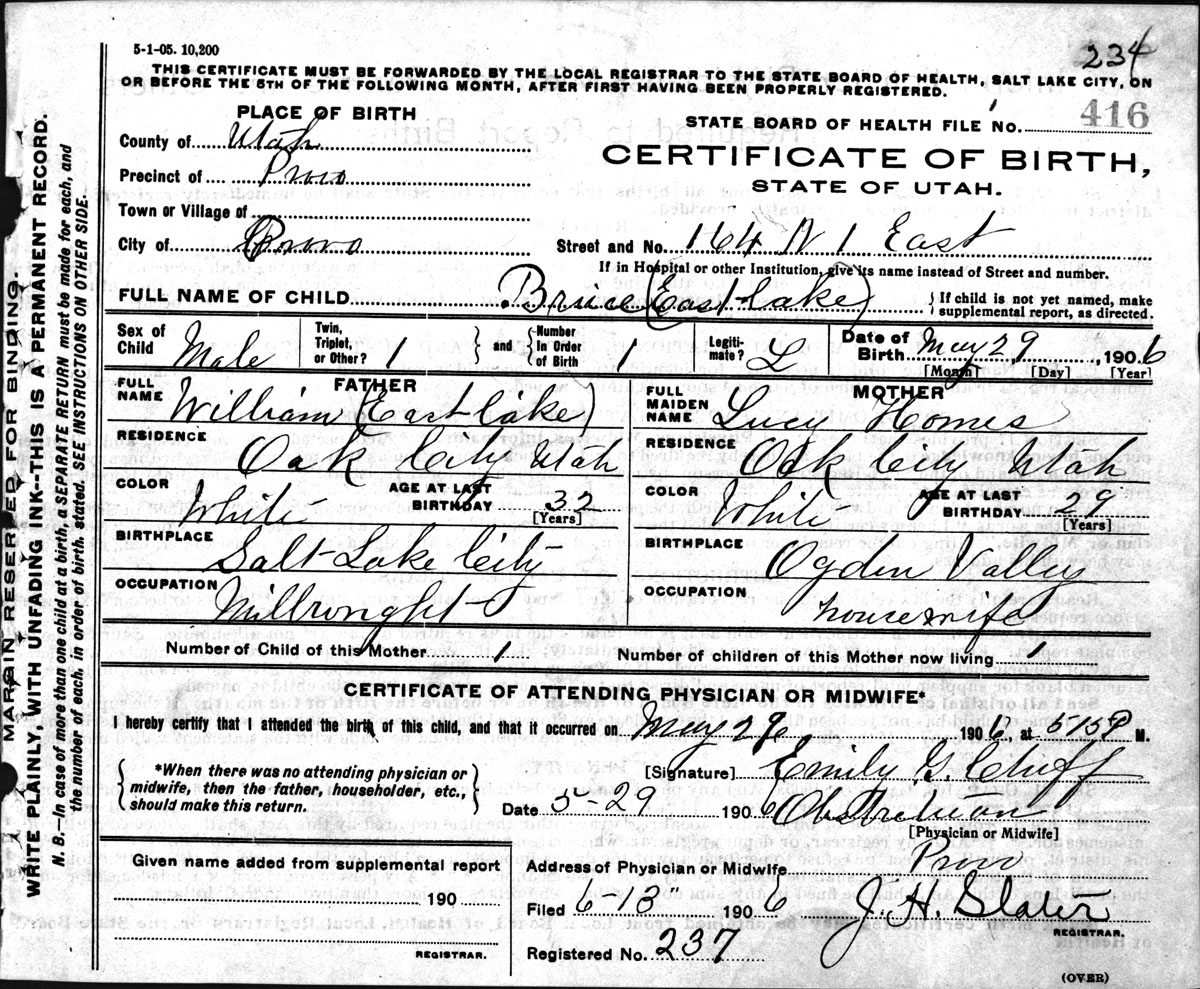 5-1-05. 10,200
234
THIS CERTIFICATE MUST BE FORWARDED BY THE LOCAL REGISTRAR TO THE STATE BOARD OF HEALTH, SALT LAKE CITY, ON
OR BEFORE THE 5TH OF THE FOLLOWING MONTH, AFTER FIRST HAVING BEEN PROPERLY REGISTERED.
PLACE OF BIRTH
STATE BOARD OF HEALTH FILE No. 416
County of Utah
CERTIFICATE OF BIRTH,
Precinct of Provo
STATE OF UTAH.
Town or Village of
City of Provo
Street and No. 164 N 1 East
If in Hospital or other Institution, give its name instead of Street and number.
FULL NAME OF CHILD Bruce (East-lake) } If child is not yet named, make
supplemental report, as directed.
Sex of Child Male
Twin, Triplet, or Other? 1 } and { Number in Order of Birth 1
Legitimate? L
Date of Birth May 29, 1906
[Month] [Day] [Year]
FATHER
FULL NAME William (East-lake)
RESIDENCE Oak City Utah
COLOR White AGE AT LAST BIRTHDAY 32
[Years]
BIRTHPLACE Salt-Lake City-
OCCUPATION Millwright-
MOTHER
FULL MAIDEN NAME Lucy Homes
RESIDENCE Oak City Utah
COLOR White AGE AT LAST BIRTHDAY 29
[Years]
BIRTHPLACE Ogden Valley
OCCUPATION housewife
Number of Child of this Mother 1 Number of children of this Mother now living 1
CERTIFICATE OF ATTENDING PHYSICIAN OR MIDWIFE*
I hereby certify that I attended the birth of this child, and that it occurred on May 29 1906, at 515P M.
{ *When there was no attending physician or
midwife, then the father, householder, etc.,
should make this return. }
[Signature] Emily G. Cluff
Date 5-29 1906 Obstetrician
[Physician or Midwife]
Given name added from supplemental report
190
REGISTRAR.
Address of Physician or Midwife Provo
Filed 6-13" 1906 J. H. Slater
REGISTRAR.
Registered No. 237
(OVER)
MARGIN RESERVED FOR BINDING
WRITE PLAINLY, WITH UNFADING INK--THIS IS A PERMANENT RECORD.
N. B.—In case of more than one child at a birth, a SEPARATE RETURN must be made for each, and
the number of each, in order of birth, stated. SEE INSTRUCTIONS ON OTHER SIDE.